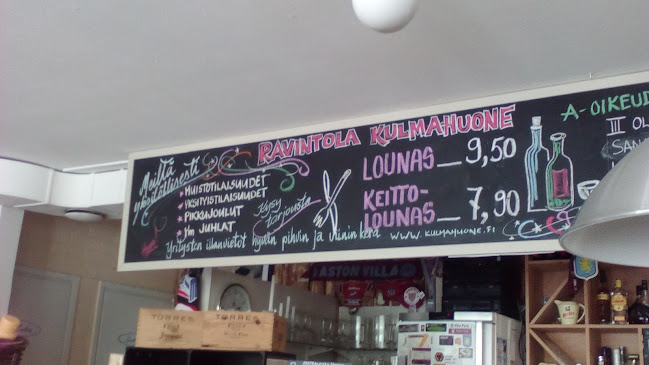 RAVINTOLA KULMAHUONE
Meiltä
yksilöllisesti
MUISTOTILAISUUDET
YKSITYISTILAISUUDET
PIKKUJOULUT
ym JUHLAT
Kysy
tarjousta
Yritysten illanvietot hyvän pihvin ja viinin kera
LOUNAS _ 9,50
KEITTO-
LOUNAS _ 7,90
WWW.KULMAHUONE.FI
A-OIKEUD
III OL
SAN
ASTON VILLA
TORRES
TORRES